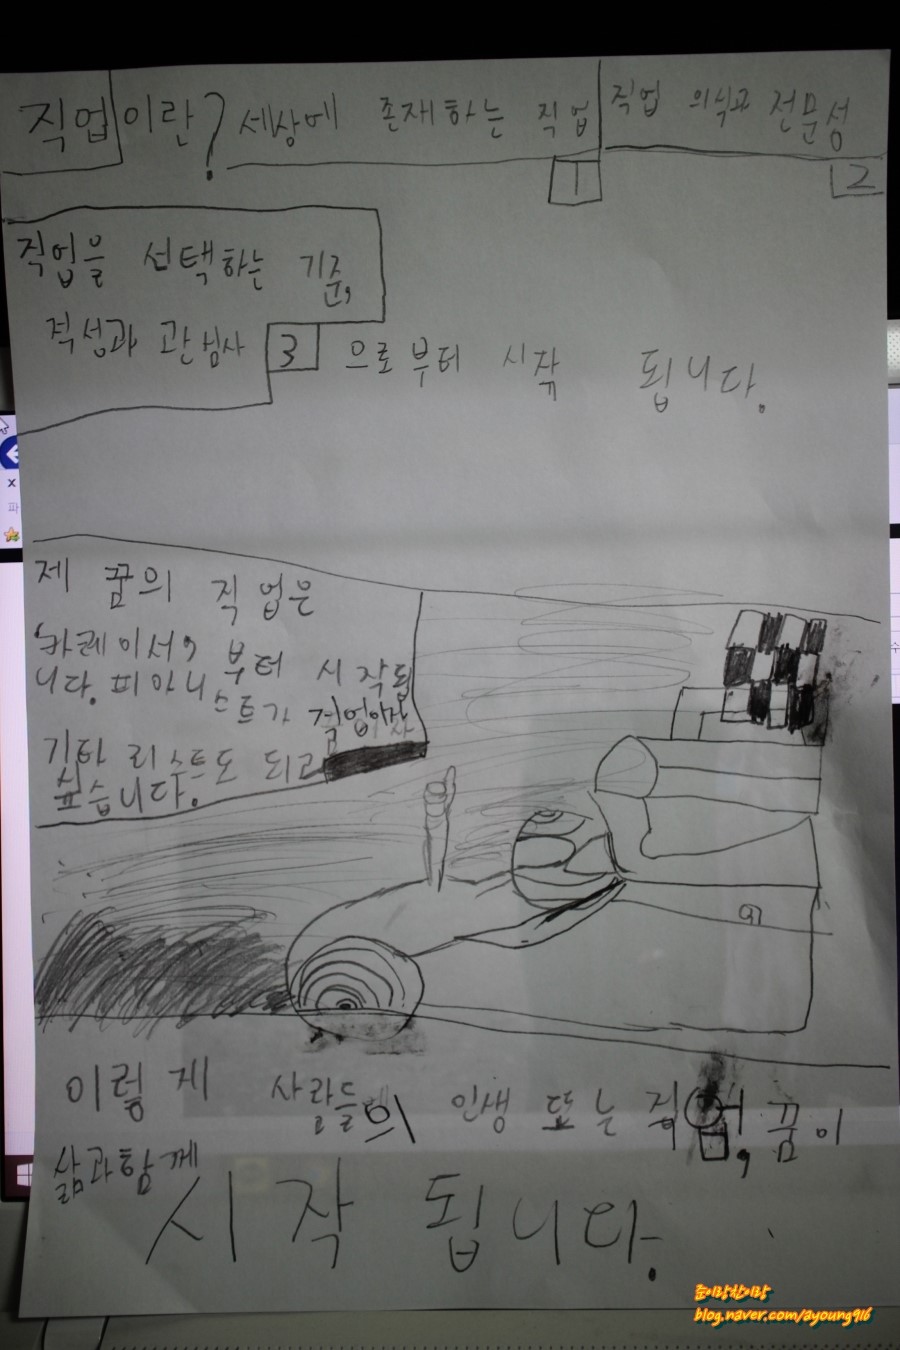 직업이란? 세상에 존재하는 직업 1
직업 의식과 전문성 2
직업을 선택하는 기준,
적성과 관심사 3 으로부터 시작 됩니다.
제 꿈의 직업은
카레이서 부터 시작됩
니다. 피아니스트가 직업이자
기타리스트도 되고
싶습니다.
91
이렇게 사람들의 인생 또는 직업, 꿈이
삶과함께
시작 됩니다.
준이랑찬이랑
blog.naver.com/ayoung916